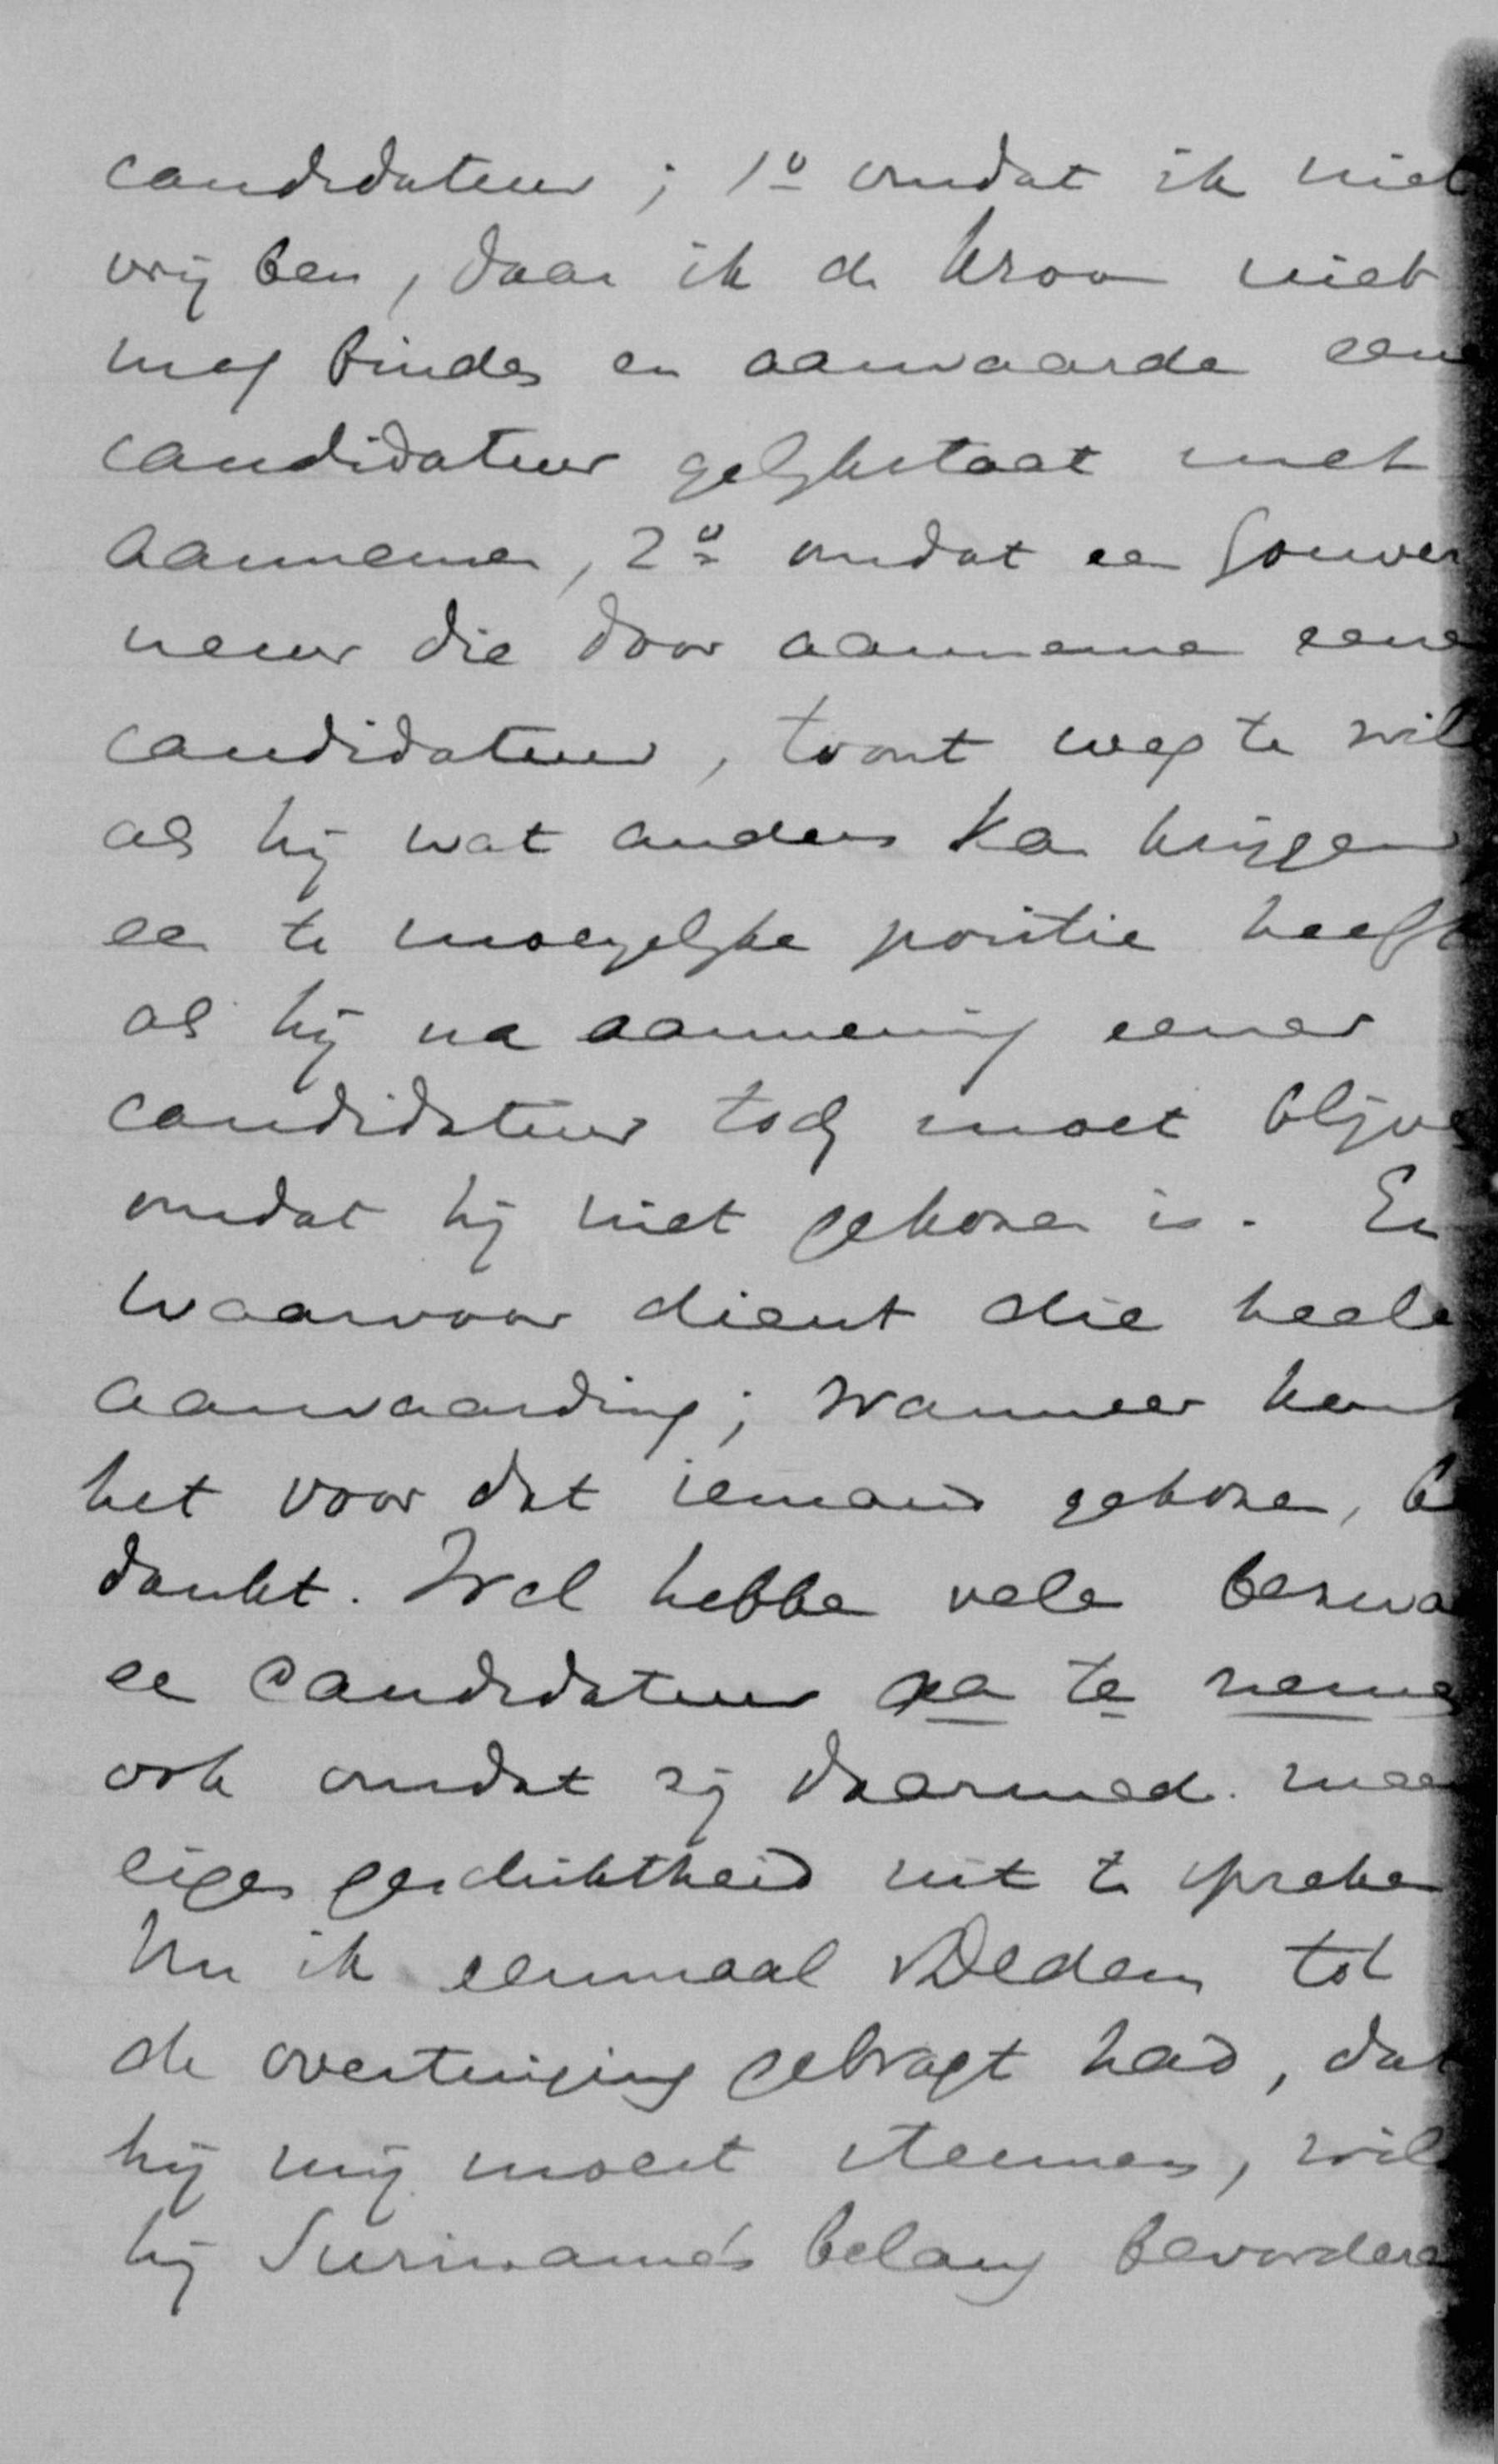 candidatuur; 1o omdat ik niet
vrij ben, daar ik de kroon niet
mag binden en aanvaarde eene
candidatuur gelijkstaat met
aannemen, 2o omdat een Gouver
neur die door aanneme eene
candidatuur, toont weg te wil
als hij wat anders kan krijgen
een te moeyelijke positie heeft
als hij na aanneming eener
candidatuur toch moet blijven
omdat hij niet gekozen is. En
waarvoor dient die heele
aanvaarding; wanneer komt
het voor dat iemand gekozen, be
dankt. Wel hebben vele bezwa
een candidatuur aan te nemen
ook omdat zij daarmede meen
eigen geschiktheid uit te spreken
Nu ik eenmaal vDedem tot
de overtuiging gebragt had, dat
hij mij moest steunen, wil
hij Suriname's belang bevorderen